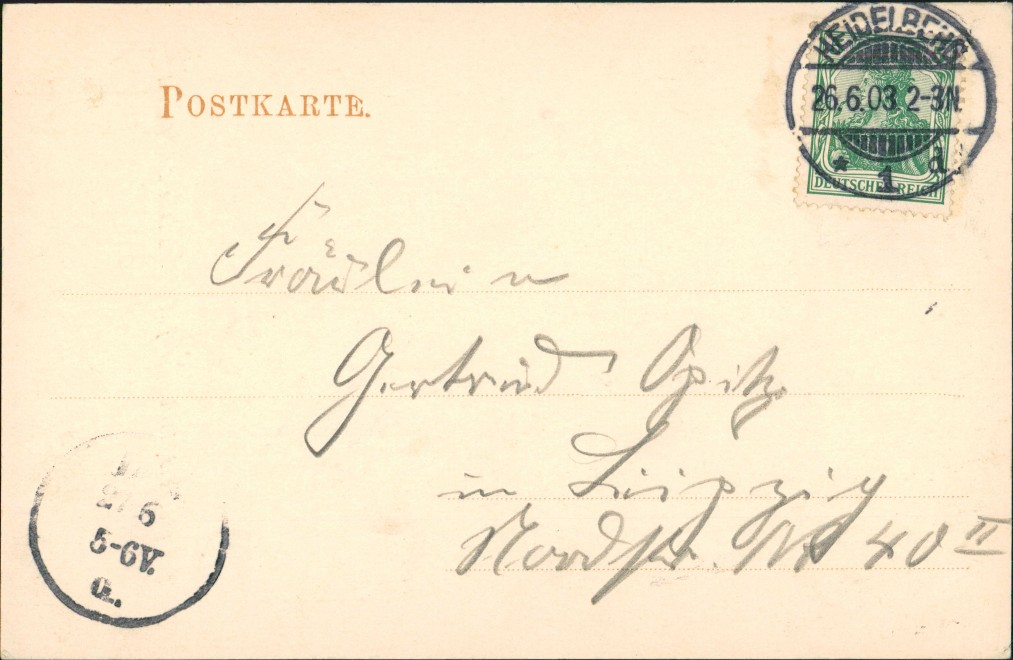 POSTKARTE.
HEIDELBERG
26.6.03 2-3N
* 1 d
DEUTSCHES REICH
Fräulein
Gertrud Opitz
in Leipzig
Nordstr. No 40 II
27 6
5-6V.